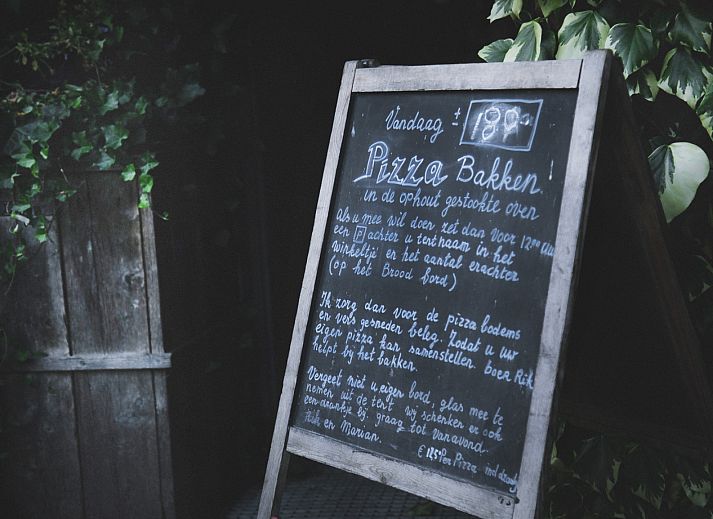 Vandaag ± 18⁰⁰
Pizza Bakken.
in de ophout gestookte oven
Als u mee wil doen zet dan voor 12⁰⁰ uur
een P achter u tentnaam in het
winkeltje en het aantal erachter
(op het Brood bord)
Ik zorg dan voor de pizza bodems
en vers gesneden beleg. Zodat u uw
eigen pizza kan samenstellen. boer Rik
helpt bij het bakken.
Vergeet niet u eigen bord, glas mee te
nemen uit de tent. wij schenken er ook
een drankje bij, graag tot vanavond.
Rik en Marian.
Per Pizza incl